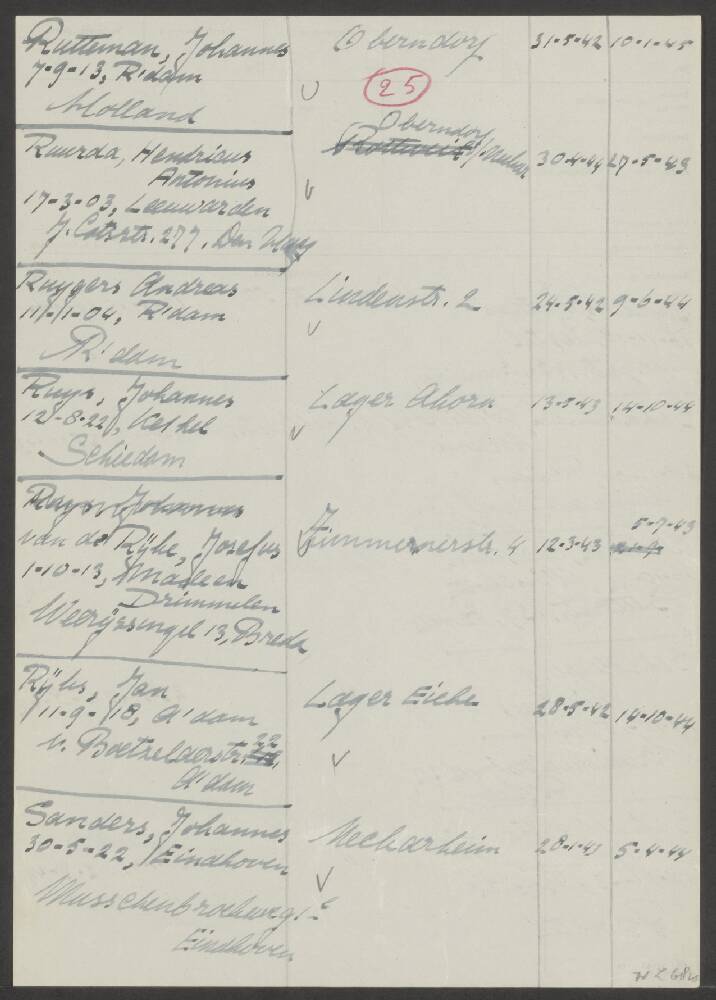 Rutteman, Johannes Oberndorf 31-5-42 10-1-45
7-9-13, R'dam
25
Holland
Ruurda, Hendricus Oberndorf
Antonius Rottweil /Neckar 30-4-44 27-5-43
17-3-03, Leeuwarden
J. Catsstr. 277, Den Haag
Ruygers Andreas Lindenstr. 2 24-5-42 9-6-44
11-1-04, R'dam
R'dam
Ruys, Johannes Lager Ahorn 13-5-43 14-10-44
12-8-22, Kethel
Schiedam
Ruys, Johannes
van de Rijke, Josefus Zimmernerstr. 4 12-3-43 5-7-43
1-10-13, Made en
Drimmelen
Weerijssingel 13, Breda
Rijks, Jan Lager Eiche 28-5-42 14-10-44
11-9-18, A'dam
v. Boetzelaerstr. 22
A'dam
Sanders, Johannes Neckarheim 5-4-44
30-5-22, Eindhoven
Musschenbroekweg
Eindhoven